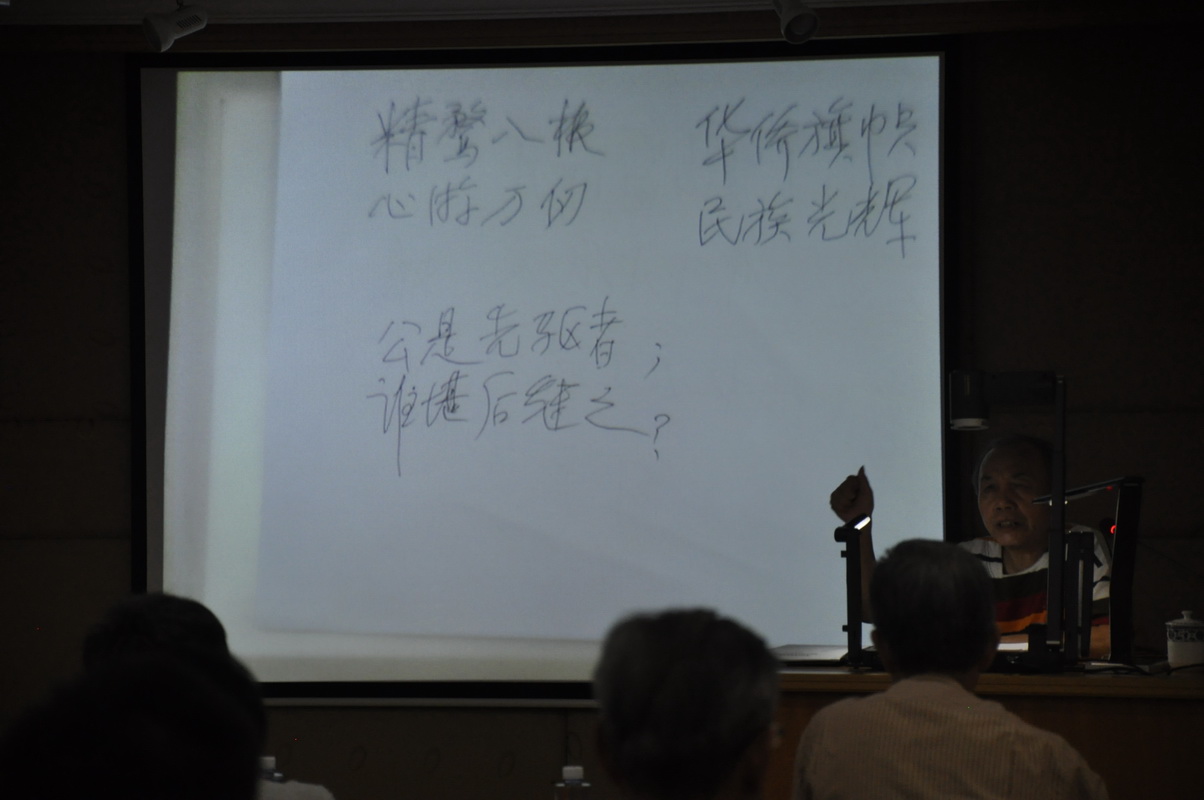 精鹜八极
心游万仞
华侨旗帜
民族光辉
公是先驱者；
谁堪后继之？